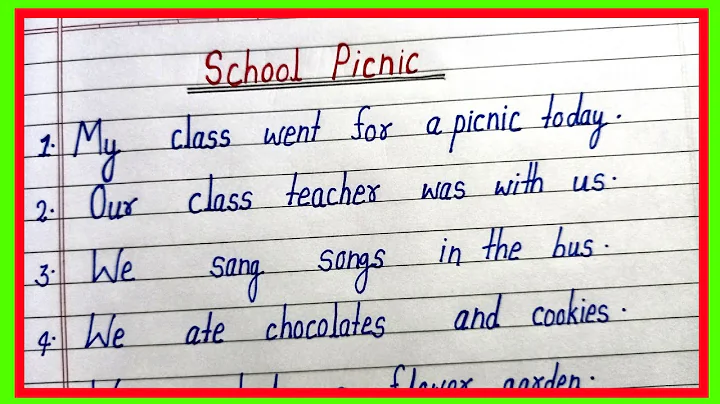 School Picnic
1. My class went for a picnic today.
2. Our class teacher was with us.
3. We sang songs in the bus.
4. We ate chocolates and cookies.
flower garden.